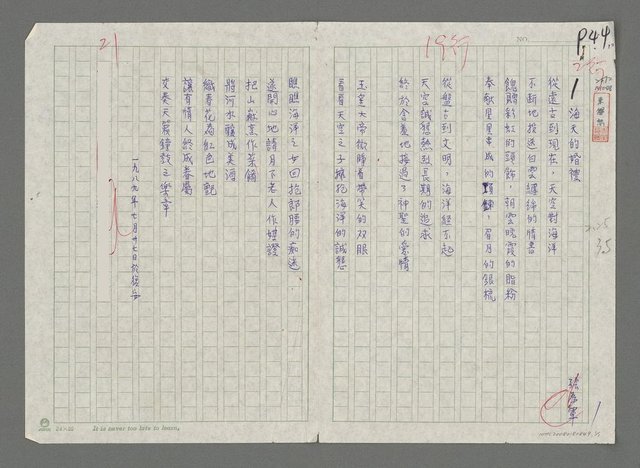 P.44
19行
21
NO.
海天的婚禮
從遠古到現在，天空對海洋
不斷地投送白雲纏綿的情書
餽贈彩虹的頭飾，朝雲晚霞的脂粉
奉獻星星串成的項鍊，眉月的銀梳
從盤古到文明，海洋經不起
天空誠懇熱烈長期的追求
終於含羞地接過了神聖的愛情
玉皇大帝微睜着帶笑的双眼
看着天空之子擁抱海洋的誠懇
瞧瞧海洋之女回抱郎腰的痴迷
遂開心地請月下老人作媒證
把山嶽烹作菜餚
將河水釀成美酒
織春花為紅色地氈
讓有情人終成眷屬
交奏天籟鐘鼓之樂章
一九八九年七月廿七日於
24×25
It is never too late to learn.